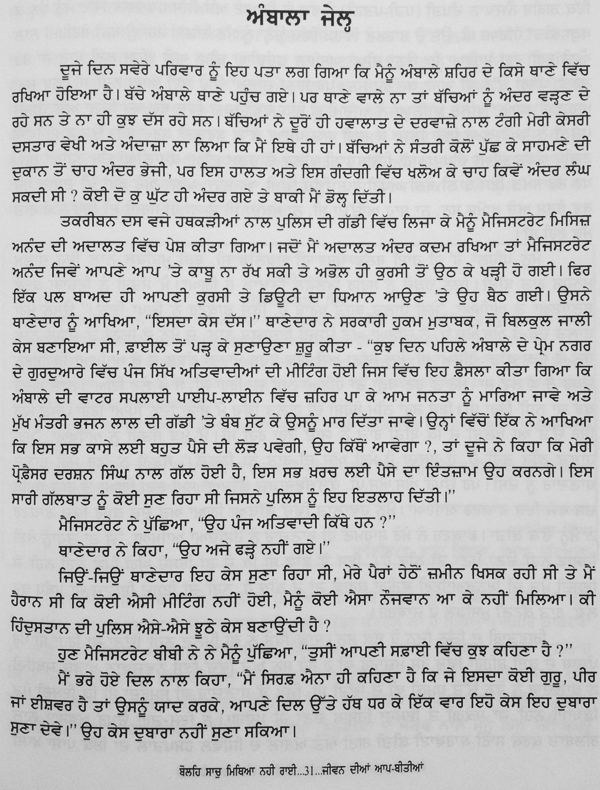 ਅੰਬਾਲਾ ਜੇਲ੍ਹ
ਦੂਜੇ ਦਿਨ ਸਵੇਰੇ ਪਰਿਵਾਰ ਨੂੰ ਇਹ ਪਤਾ ਲਗ ਗਿਆ ਕਿ ਮੈਨੂੰ ਅੰਬਾਲੇ ਸ਼ਹਿਰ ਦੇ ਕਿਸੇ ਥਾਣੇ ਵਿੱਚ
ਰਖਿਆ ਹੋਇਆ ਹੈ। ਬੱਚੇ ਅੰਬਾਲੇ ਥਾਣੇ ਪਹੁੰਚ ਗਏ। ਪਰ ਥਾਣੇ ਵਾਲੇ ਨਾ ਤਾਂ ਬੱਚਿਆਂ ਨੂੰ ਅੰਦਰ ਵੜ੍ਹਣ ਦੇ
ਰਹੇ ਸਨ ਤੇ ਨਾ ਹੀ ਕੁਝ ਦੱਸ ਰਹੇ ਸਨ। ਬੱਚਿਆਂ ਨੇ ਦੂਰੋਂ ਹੀ ਹਵਾਲਾਤ ਦੇ ਦਰਵਾਜ਼ੇ ਨਾਲ ਟੰਗੀ ਮੇਰੀ ਕੇਸਰੀ
ਦਸਤਾਰ ਵੇਖੀ ਅਤੇ ਅੰਦਾਜ਼ਾ ਲਾ ਲਿਆ ਕਿ ਮੈਂ ਇਥੇ ਹੀ ਹਾਂ। ਬੱਚਿਆਂ ਨੇ ਸੰਤਰੀ ਕੋਲੋਂ ਪੁੱਛ ਕੇ ਸਾਹਮਣੇ ਦੀ
ਦੁਕਾਨ ਤੋਂ ਚਾਹ ਅੰਦਰ ਭੇਜੀ, ਪਰ ਇਸ ਹਾਲਤ ਅਤੇ ਇਸ ਗੰਦਗੀ ਵਿੱਚ ਖਲੋਅ ਕੇ ਚਾਹ ਕਿਵੇਂ ਅੰਦਰ ਲੰਘ
ਸਕਦੀ ਸੀ ? ਕੋਈ ਦੋ ਕੁ ਘੁੱਟ ਹੀ ਅੰਦਰ ਗਏ ਤੇ ਬਾਕੀ ਮੈਂ ਡੋਲ੍ਹ ਦਿੱਤੀ।
ਤਕਰੀਬਨ ਦਸ ਵਜੇ ਹਥਕੜੀਆਂ ਨਾਲ ਪੁਲਿਸ ਦੀ ਗੱਡੀ ਵਿੱਚ ਲਿਜਾ ਕੇ ਮੈਨੂੰ ਮੈਜਿਸਟਰੇਟ ਮਿਸਿਜ਼
ਅਨੰਦ ਦੀ ਅਦਾਲਤ ਵਿੱਚ ਪੇਸ਼ ਕੀਤਾ ਗਿਆ। ਜਦੋਂ ਮੈਂ ਅਦਾਲਤ ਅੰਦਰ ਕਦਮ ਰਖਿਆ ਤਾਂ ਮੈਜਿਸਟਰੇਟ
ਅਨੰਦ ਜਿਵੇਂ ਆਪਣੇ ਆਪ 'ਤੇ ਕਾਬੂ ਨਾ ਰੱਖ ਸਕੀ ਤੇ ਅਭੋਲ ਹੀ ਕੁਰਸੀ ਤੋਂ ਉਠ ਕੇ ਖੜ੍ਹੀ ਹੋ ਗਈ। ਫਿਰ
ਇੱਕ ਪਲ ਬਾਅਦ ਹੀ ਆਪਣੀ ਕੁਰਸੀ ਤੇ ਡਿਊਟੀ ਦਾ ਧਿਆਨ ਆਉਣ 'ਤੇ ਉਹ ਬੈਠ ਗਈ। ਉਸਨੇ
ਥਾਣੇਦਾਰ ਨੂੰ ਆਖਿਆ, "ਇਸਦਾ ਕੇਸ ਦੱਸ।" ਥਾਣੇਦਾਰ ਨੇ ਸਰਕਾਰੀ ਹੁਕਮ ਮੁਤਾਬਕ, ਜੋ ਬਿਲਕੁਲ ਜਾਲੀ
ਕੇਸ ਬਣਾਇਆ ਸੀ, ਫ਼ਾਈਲ ਤੋਂ ਪੜ੍ਹ ਕੇ ਸੁਣਾਉਣਾ ਸ਼ੁਰੂ ਕੀਤਾ - "ਕੁਝ ਦਿਨ ਪਹਿਲੇ ਅੰਬਾਲੇ ਦੇ ਪ੍ਰੇਮ ਨਗਰ
ਦੇ ਗੁਰਦੁਆਰੇ ਵਿੱਚ ਪੰਜ ਸਿੱਖ ਅਤਿਵਾਦੀਆਂ ਦੀ ਮੀਟਿੰਗ ਹੋਈ ਜਿਸ ਵਿੱਚ ਇਹ ਫ਼ੈਸਲਾ ਕੀਤਾ ਗਿਆ ਕਿ
ਅੰਬਾਲੇ ਦੀ ਵਾਟਰ ਸਪਲਾਈ ਪਾਈਪ-ਲਾਈਨ ਵਿੱਚ ਜ਼ਹਿਰ ਪਾ ਕੇ ਆਮ ਜਨਤਾ ਨੂੰ ਮਾਰਿਆ ਜਾਵੇ ਅਤੇ
ਮੁੱਖ ਮੰਤਰੀ ਭਜਨ ਲਾਲ ਦੀ ਗੱਡੀ 'ਤੇ ਬੰਬ ਸੁੱਟ ਕੇ ਉਸਨੂੰ ਮਾਰ ਦਿੱਤਾ ਜਾਵੇ। ਉਨ੍ਹਾਂ ਵਿੱਚੋਂ ਇੱਕ ਨੇ ਆਖਿਆ
ਕਿ ਇਸ ਸਭ ਕਾਸੇ ਲਈ ਬਹੁਤ ਪੈਸੇ ਦੀ ਲੋੜ ਪਵੇਗੀ, ਉਹ ਕਿੱਥੋਂ ਆਵੇਗਾ ?, ਤਾਂ ਦੂਜੇ ਨੇ ਕਿਹਾ ਕਿ ਮੇਰੀ
ਪ੍ਰੋਫ਼ੈਸਰ ਦਰਸ਼ਨ ਸਿੰਘ ਨਾਲ ਗੱਲ ਹੋਈ ਹੈ, ਇਸ ਸਭ ਖ਼ਰਚ ਲਈ ਪੈਸੇ ਦਾ ਇੰਤਜ਼ਾਮ ਉਹ ਕਰਨਗੇ। ਇਸ
ਸਾਰੀ ਗੱਲਬਾਤ ਨੂੰ ਕੋਈ ਸੁਣ ਰਿਹਾ ਸੀ ਜਿਸਨੇ ਪੁਲਿਸ ਨੂੰ ਇਹ ਇਤਲਾਹ ਦਿੱਤੀ।"
ਮੈਜਿਸਟਰੇਟ ਨੇ ਪੁੱਛਿਆ, "ਉਹ ਪੰਜ ਅਤਿਵਾਦੀ ਕਿੱਥੇ ਹਨ ?"
ਥਾਣੇਦਾਰ ਨੇ ਕਿਹਾ, "ਉਹ ਅਜੇ ਫੜ੍ਹੇ ਨਹੀ ਗਏ।"
ਜਿਉਂ-ਜਿਉਂ ਥਾਣੇਦਾਰ ਇਹ ਕੇਸ ਸੁਣਾ ਰਿਹਾ ਸੀ, ਮੇਰੇ ਪੈਰਾਂ ਹੇਠੋਂ ਜ਼ਮੀਨ ਖਿਸਕ ਰਹੀ ਸੀ ਤੇ ਮੈਂ
ਹੈਰਾਨ ਸੀ ਕਿ ਕੋਈ ਐਸੀ ਮੀਟਿੰਗ ਨਹੀਂ ਹੋਈ, ਮੈਨੂੰ ਕੋਈ ਐਸਾ ਨੌਜਵਾਨ ਆ ਕੇ ਨਹੀਂ ਮਿਲਿਆ। ਕੀ
ਹਿੰਦੁਸਤਾਨ ਦੀ ਪੁਲਿਸ ਐਸੇ-ਐਸੇ ਝੂਠੇ ਕੇਸ ਬਣਾਉਂਦੀ ਹੈ ?
ਹੁਣ ਮੈਜਿਸਟਰੇਟ ਬੀਬੀ ਨੇ ਨੇ ਮੈਨੂੰ ਪੁੱਛਿਆ, "ਤੁਸੀਂ ਆਪਣੀ ਸਫ਼ਾਈ ਵਿੱਚ ਕੁਝ ਕਹਿਣਾ ਹੈ ?"
ਮੈਂ ਭਰੇ ਹੋਏ ਦਿਲ ਨਾਲ ਕਿਹਾ, "ਮੈਂ ਸਿਰਫ਼ ਐਨਾ ਹੀ ਕਹਿਣਾ ਹੈ ਕਿ ਜੇ ਇਸਦਾ ਕੋਈ ਗੁਰੂ, ਪੀਰ
ਜਾਂ ਈਸ਼ਵਰ ਹੈ ਤਾਂ ਉਸਨੂੰ ਯਾਦ ਕਰਕੇ, ਆਪਣੇ ਦਿਲ ਉੱਤੇ ਹੱਥ ਧਰ ਕੇ ਇੱਕ ਵਾਰ ਇਹੋ ਕੇਸ ਇਹ ਦੁਬਾਰਾ
ਸੁਣਾ ਦੇਵੇ।" ਉਹ ਕੇਸ ਦੁਬਾਰਾ ਨਹੀਂ ਸੁਣਾ ਸਕਿਆ।
ਬੋਲਹਿ ਸਾਚੁ ਮਿਥਿਆ ਨਹੀ ਰਾਈ...31...ਜੀਵਨ ਦੀਆਂ ਆਪ-ਬੀਤੀਆਂ